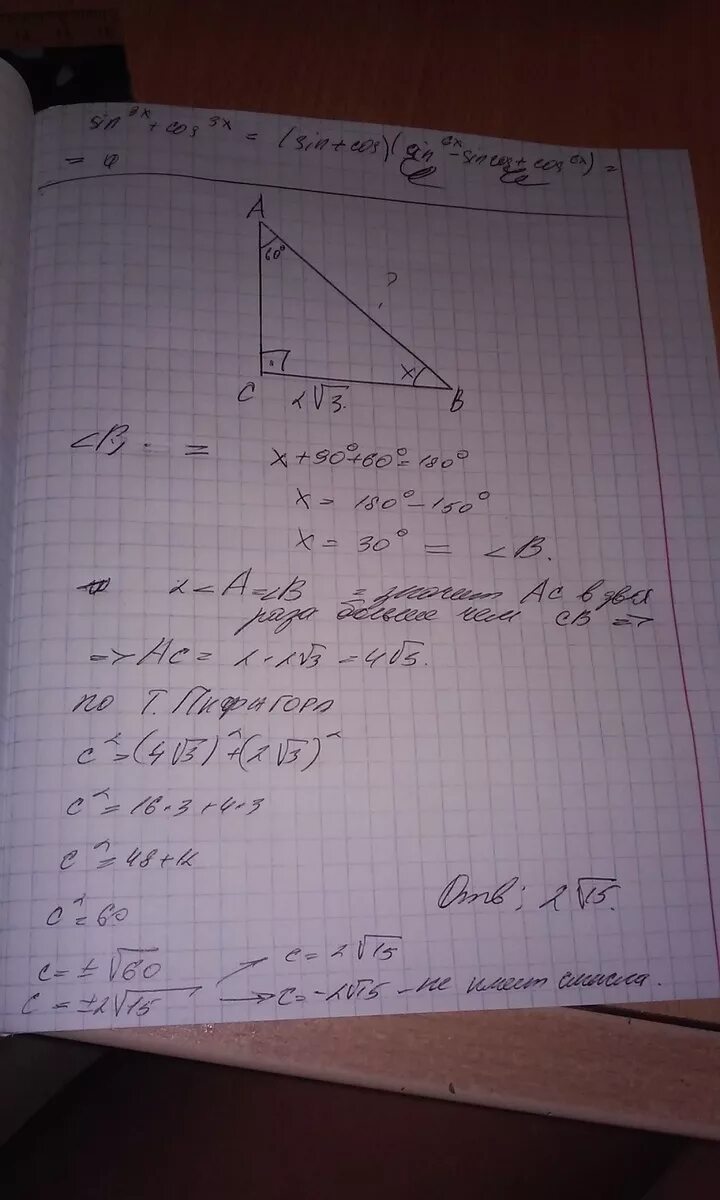 sin^3x + cos^3x = (sin + cos)(sin^6x - sin cos + cos^6x) =
=
A
60°
?
x
C
2√3
B
∠B, =
x + 90° + 60° = 180°
x = 180° - 150°
x = 30° = ∠B.
2∠A = ∠B = значит AC в два
раза больше чем CB =>
=> AC = 2 · 2√3 = 4√3.
по Т. Пифагора
c² = (4√3)² + (2√3)²
c² = 16·3 + 4·3
c² = 48 + 12
c² = 60
Отв: 2√15.
c = ±√60
c = 2√15
c = ±2√15
c = -2√15 - не имеет смысла.